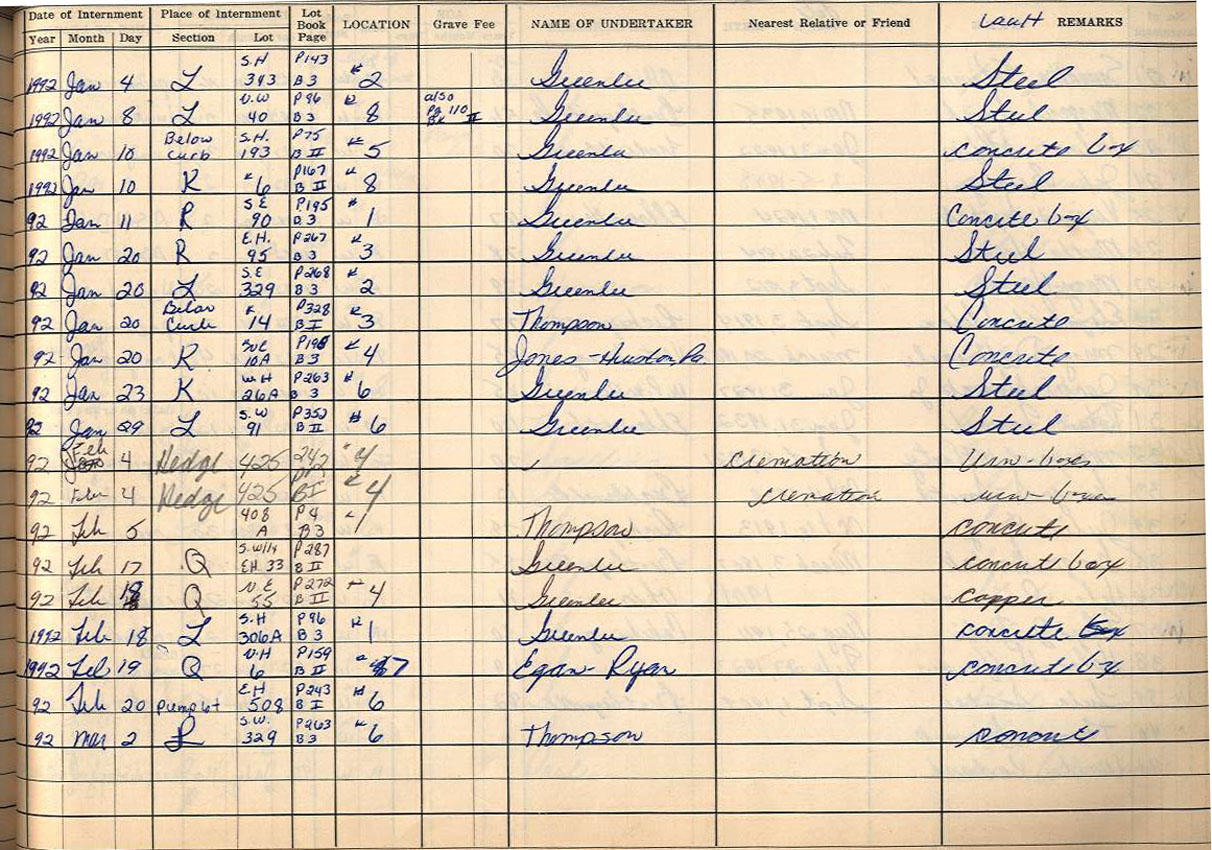 Date of Internment Place of Internment Lot Book Page LOCATION Grave Fee NAME OF UNDERTAKER Nearest Relative or Friend Vault REMARKS
Year Month Day Section Lot
S.H P143
1992 Jan 4 L 343 B3 # 2 Greenlee Steel
N.W P96 also
1992 Jan 8 L 40 B3 # 8 Pg 110 Bk II Greenlee Steel
Below S.H. P75
1992 Jan 10 Curb 193 B II # 5 Greenlee Concrete box
P167
1992 Jan 10 K # 6 B II # 8 Greenlee Steel
S.E P195
92 Jan 11 R 90 B3 # 1 Greenlee Concrete box
E.H. P267
92 Jan 20 R 95 B3 # 3 Greenlee Steel
S.E P268
92 Jan 20 L 329 B3 # 2 Greenlee Steel
Below P328
92 Jan 20 Curb # 14 B I # 3 Thompson Concrete
92 Jan 20 R 10A B3 # 4 Jones - Huston, Pa. Concrete
W.H P263
92 Jan 23 K 26A B 3 # 6 Greenlee Steel
S.W P352
92 Jan 29 L 91 B II # 6 Greenlee Steel
92 Feb 4 Hedge 425 242 # 4 Cremation Urn-boxes
92 Feb 4 Hedge 425 BI # 4 Cremation urn-boxes
408 P4
92 Feb 5 A B3 # 1 Thompson concrete
P287
92 Feb 17 Q E.H. 33 B II Greenlee concrete box
N.E P272
92 Feb 18 Q 55 B II # 4 Greenlee copper
S.H P96
1992 Feb 18 L 306A B3 # 1 Greenlee concrete box
N.H P159
1992 Feb 19 Q 6 B II # 7 Egan-Ryan concrete box
E.H P243
92 Feb 20 Pump lot 508 B I # 6
S.W. P263
92 Mar 2 L 329 B3 # 6 Thompson concrete